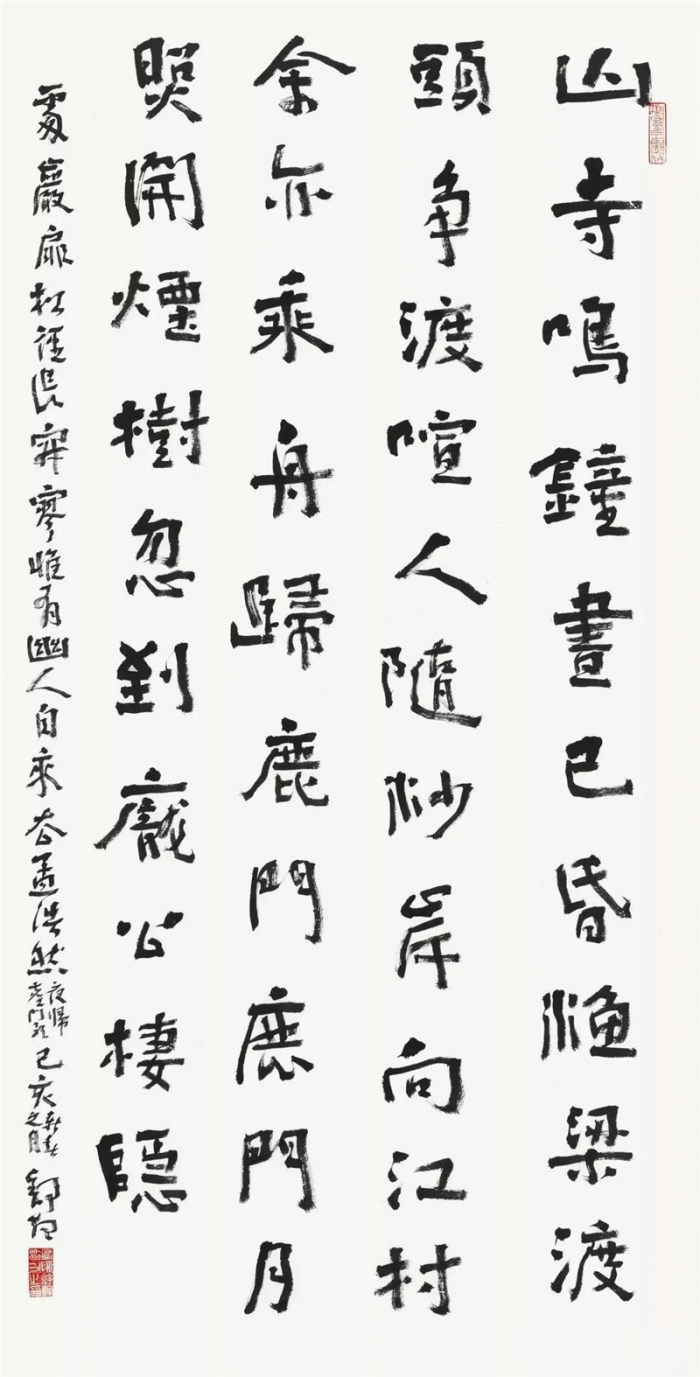 山寺鳴鐘晝已昏漁梁渡
頭争渡喧人隨沙岸向江村
余亦乘舟歸鹿門鹿門月
照開煙樹忽到龐公棲隱
處巖扉松徑長寂寥惟有幽人自來去孟浩然夜歸鹿門歌己亥